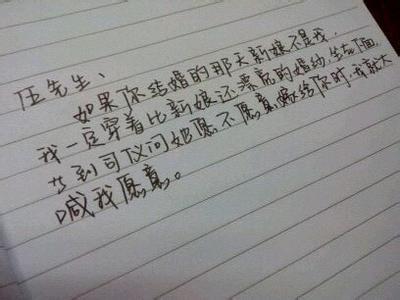 压先生、
如果你结婚的那天新娘不是我，
我一定穿着比新娘还漂亮的婚纱，坐在下面，
当到司仪问她愿不愿意嫁给你时，我就大
喊我愿意。